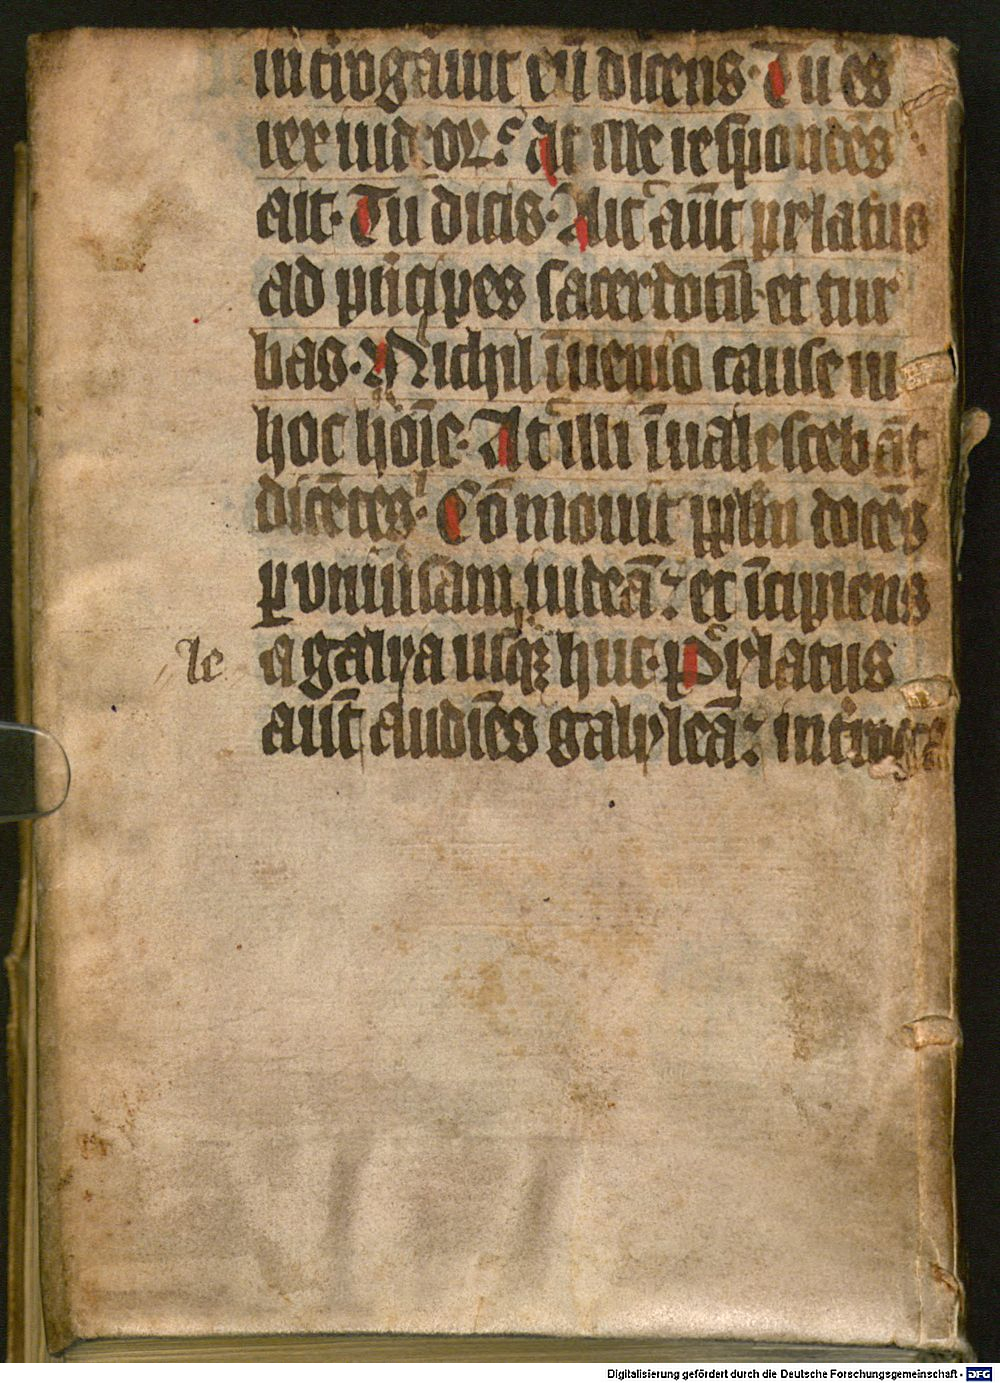 int̾rogauit eū dicens. Tu es
rex iudeoꝝ? At ille respondēs
ait. Tu dicis. Ait aūt pylatus
ad p̾ncipes sacerdotū et tur
bas. Nichil īuenio cause in
hoc hōīe. At illi īualescebāt
dicētes. Cōmouit ppl̄m docēs
ꝑ uniūsam iudeā: et īcipiens
le a galyra usqꝫ huc. Pylatus
aūt audiēs galyleā: int̾roga
Digitalisierung gefördert durch die Deutsche Forschungsgemeinschaft - DFG